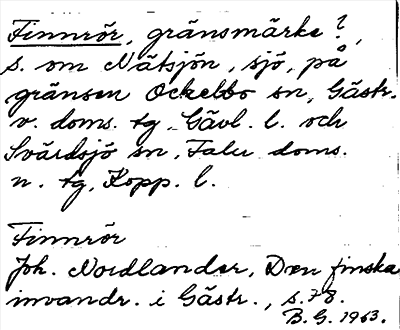 Finnrör, gränsmärke?,
s. om Nätsjön, sjö, på
gränsen Ockelbo sn, Gästr.
v. doms. tg, Gävl. l. och
Svärdsjö sn, Falu doms.
n. tg, Kopp. l.
Finnrör
Joh. Nordlander, Den finska
invandr. i Gästr., s. 78.
B. G. 1963.